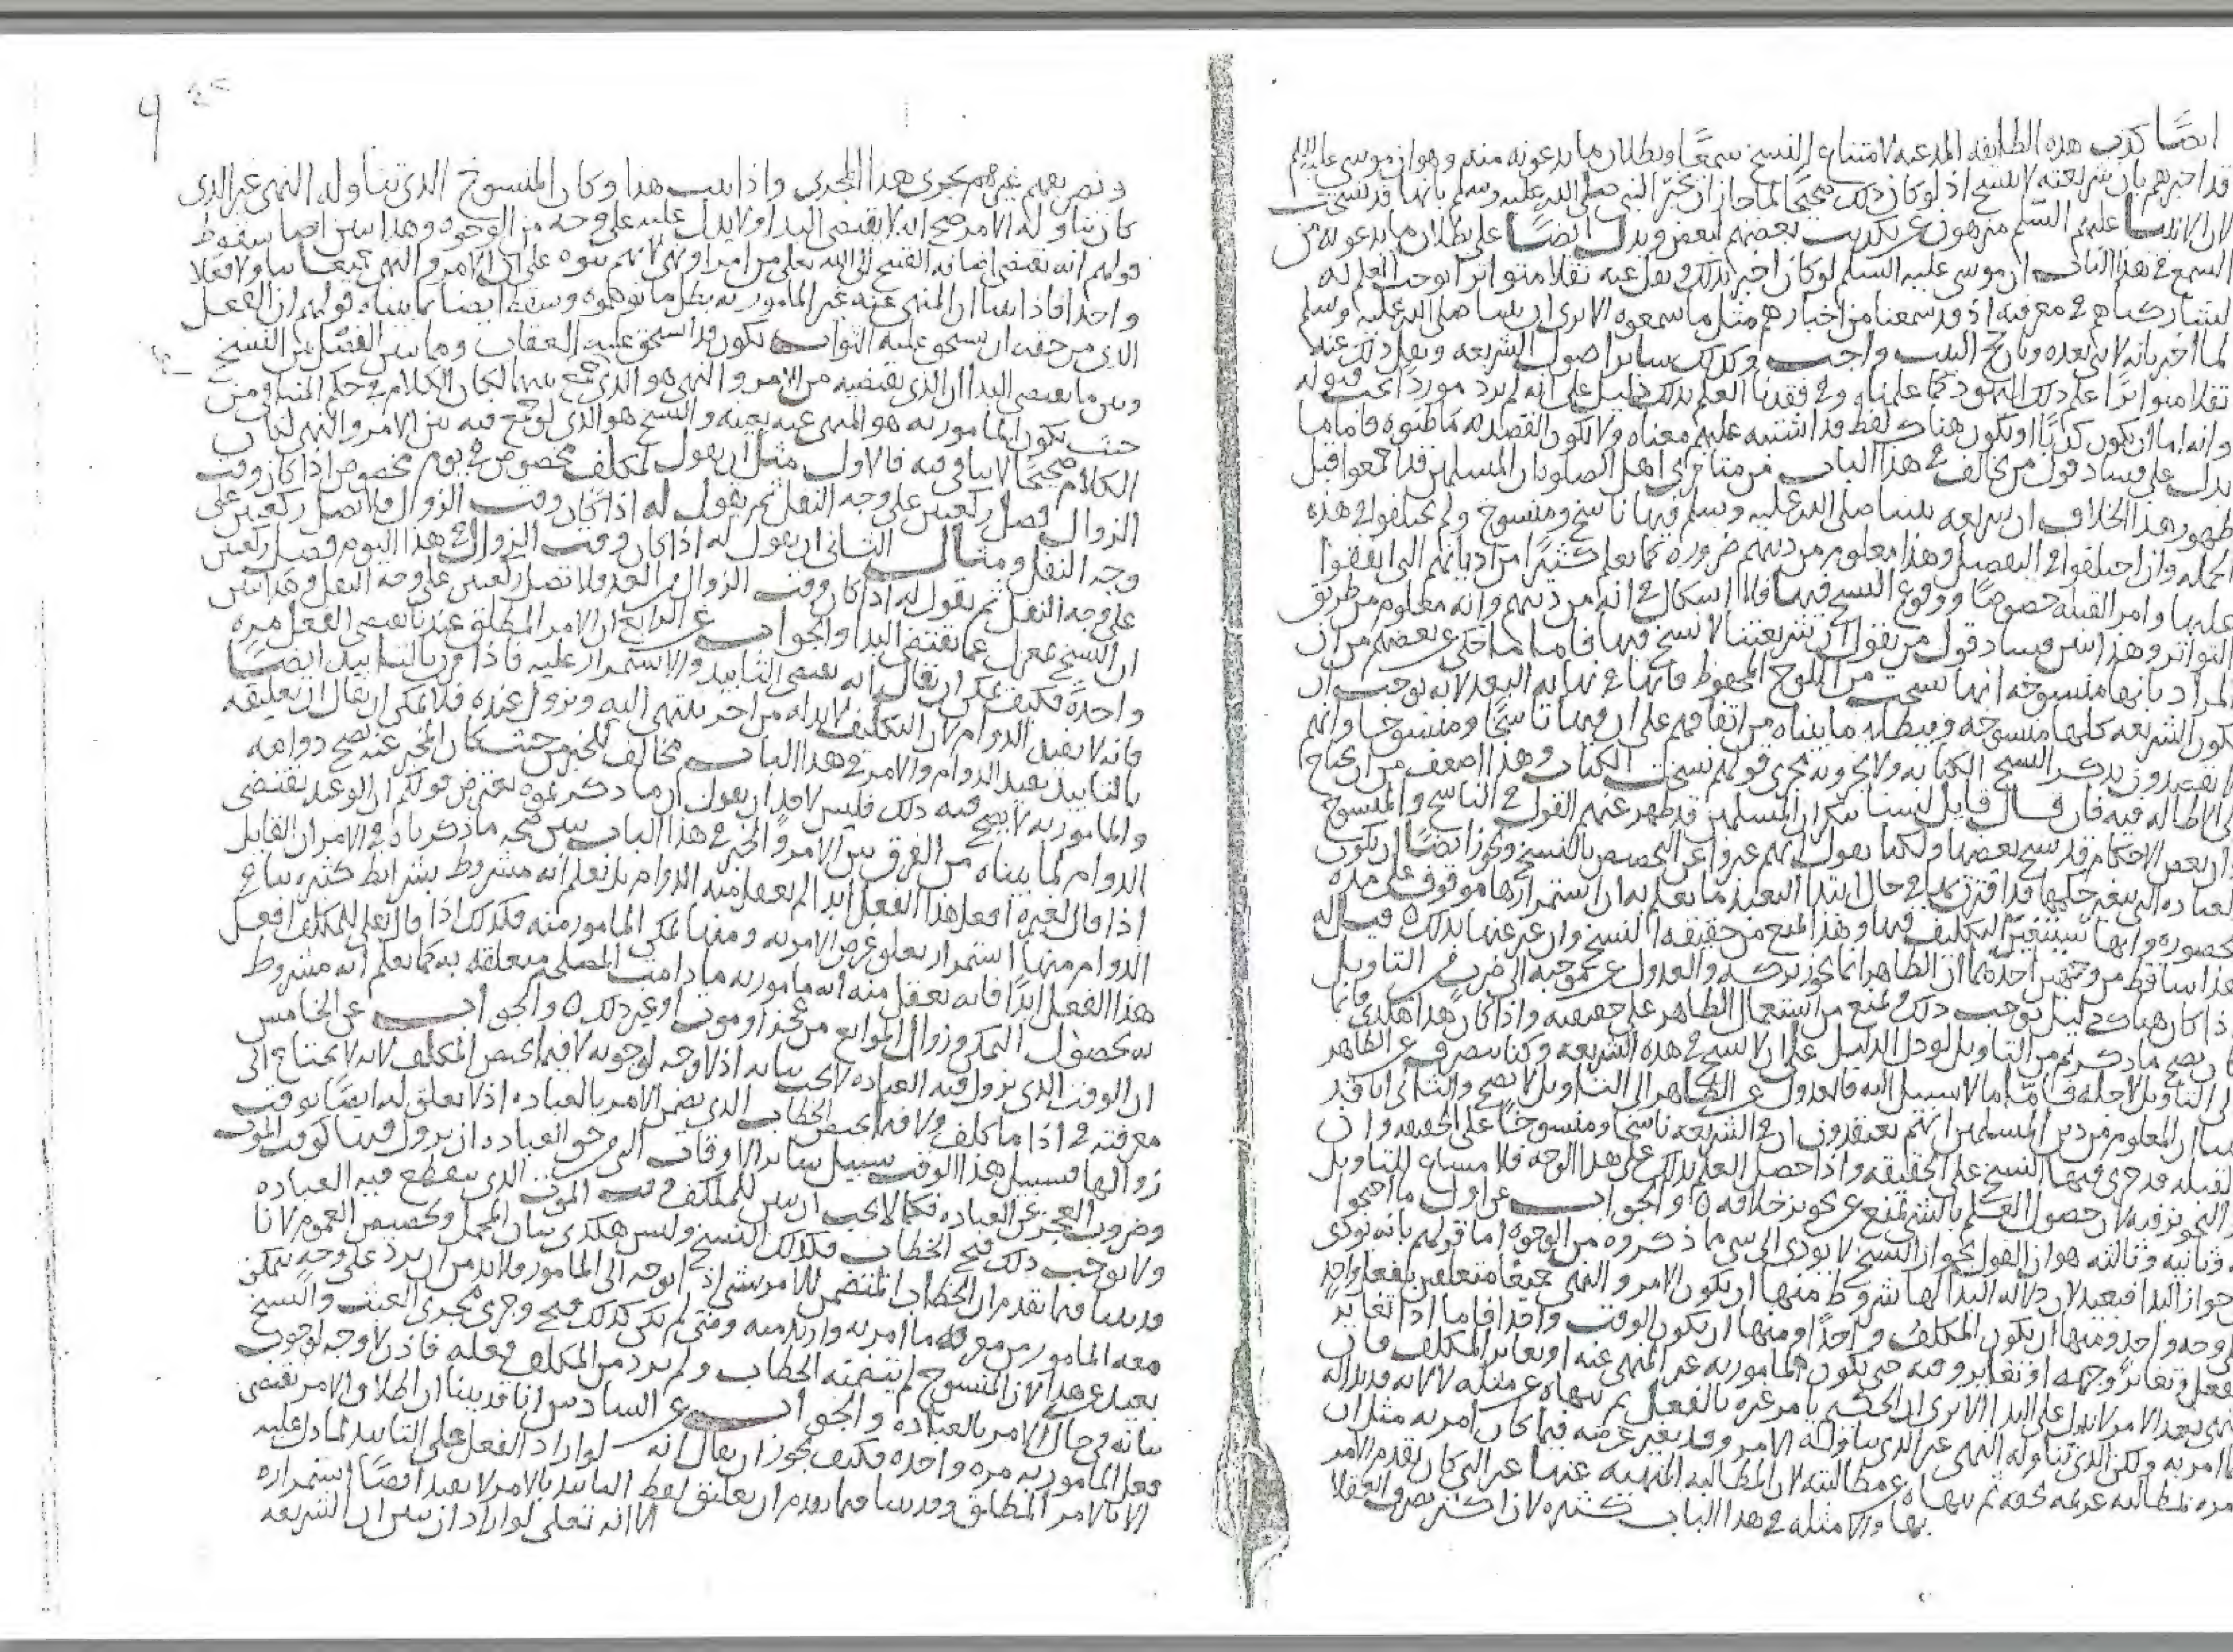 ايضا كذب هذه الطايفه المدعيه لامتناع النسخ سمعا وبطلان ما يدعونه منه وهو ان موسى عليه السلم
قد اخبرهم بان شريعته لا تنسخ اذ لو كان ذلك صحيحا لما جاز ان يخبر النبي صلى الله عليه وسلم بانها قد نسخت
لان الانبيا عليهم السلم منزهون عن تكذيب بعضهم لبعض ويدل ايضا على بطلان ما يدعونه من
السمع في هذا الباب ان موسى عليه السلم لو كان اخبر بذلك ونقل عنه نقلا متواترا يوجب العلم له
لشاركناهم في معرفته اذ قد سمعنا من اخبارهم مثل ما سمعوه الا ترى ان نبينا صلى الله عليه وسلم
لما اخبر بانه لا نبي بعده وبان حج البيت واجب وكذلك ساير اصول الشريعه ونقل ذلك عنه
نقلا متواترا علم ذلك اليهود كما علمناه وفي فقدنا العلم بذلك دليل على انه لم يرد موردا يجب قبوله
وانه اما ان يكون كذبا او يكون هناك لفظ قد اشتبه عليهم معناه ولا يكون القصد به ما ظنوه فاما ما
يدل على فساد قول من يخالف في هذا الباب من متاخري اهل الصلوه فان المسلمين قد اجمعوا قبل
ظهور هذا الخلاف ان شريعه نبينا صلى الله عليه وسلم فيها ناسخ ومنسوخ ولم يختلفوا في هذه
الجمله وان اختلفوا في التفصيل وهذا معلوم من دينهم ضروره كما يعلم كثيرا من اديانهم التي اتفقوا
عليها وامر القبله خصوصا ووقوع النسخ فيها فلا اشكال في انه من دينهم وانه معلوم من طريق
التواتر وهذا يبين فساد قول من يقول ان شريعتنا لا نسخ فيها فاما ما حكي عن بعضهم من ان
المراد بانها منسوخه انها نسخت من اللوح المحفوظ فانها في نهايه البعد لانه يوجب ان
تكون الشريعه كلها منسوخه ويبطله ما بيناه من اتفاقهم على ان فيها ناسخا ومنسوخا وانهم
لا يقصدون بذكر النسخ الكتابه ولا يجرونه مجرى قولهم نسخت الكتاب وهذا اضعف من ان يحتاج
الى الاطاله فيه فان قال قايل لسنا ننكر ان المسلمين قد ظهر عنهم القول في الناسخ والمنسوخ
وان بعض الاحكام قد نسخ بعضها ولكنا نقول انهم عبروا عن التخصيص بالنسخ ويجوز ايضا ان يكون
العباده التي تغير حكمها قد اقترن بها في حال ابتدا التعبد ما يعلم به ان استمرارها موقوف على مده
محصوره وانها سيتغير التكليف فيها وهذا يمنع من حقيقه النسخ وان عبر عنها بذلك ه قيل له
هذا ساقط من وجهين احدهما ان الظاهر انما يجوز تركه والعدول عن موجبه الى ضرب من التاويل
اذا كان هناك دليل يوجب ذلك ويمنع من استعمال الظاهر على حقيقته واذا كان هذا هكذا فانما
كان يصح ما ذكرتم من التاويل لو دل الدليل على ان لا نسخ في هذه الشريعه وكنا نصرف عن الظاهر
الى التاويل لاجله فاما ما لا سبيل اليه فالعدول عن الظاهر الى التاويل لا يصح والثاني انا قد
بينا ان المعلوم من دين المسلمين انهم يعتقدون ان في الشريعه ناسخا ومنسوخا على الحقيقه وان
القبله قد جرى فيها النسخ على الحقيقه واذا حصل العلم بذلك على هذا الوجه فلا مساغ للتاويل
والتجويز فيه لان حصول العلم بالشي يمنع عن تجويز خلافه ه والجواب عن اول ما احتجوا
به وثانيه وثالثه هو ان القول بجواز النسخ لا يودي الى شي ما ذكروه من الوجوه اما قولهم بانه يودي
الى جواز البدا فبعيد لان دلاله البدا لها شروط منها ان يكون الامر والنهي جميعا متعلقين بفعل واحد
على وجه واحد ومنها ان يكون المكلف واحدا ومنها ان يكون الوقت واحدا فاما اذا تغاير
الفعل وتغاير وجهه او تغاير وقته حتى يكون المامور به غير المنهي عنه او تغاير المكلف فان
النهي بعد الامر لا يدل على البدا الا ترى ان الحكيم يامر غيره بالفعل ثم ينهاه عن مثله لا لانه قد بدا له
ما امر به ولكن الذي تناوله النهي غير الذي تناوله الامر وقد يتغير غرضه فيما كان امر به مثل ان
يامره بمطالبه غريمه بحقه ثم ينهاه عن مطالبته لان المطالبه المنهيه عنها غير التي كان تقدم الامر
بها والامثله في هذا الباب كثيره لان اكثر تصرف العقلا
وتصريفهم غيرهم يجري هذا المجرى واذا ثبت هذا وكان المنسوخ الذي تناوله النهي غير الذي
كان تناوله الامر صح انه لا يقتضي البدا ولا يدل عليه على وجه من الوجوه وهذا يبين ايضا سقوط
قولهم انه يقتضي اضافه القبيح الى الله تعلى من امر او نهي لانهم بنوه على ان الامر والنهي جميعا تناولا فعلا
واحدا فاذا بينا ان المنهي عنه غير المامور به بطل ما توهموه وسقط ايضا بما بيناه قولهم ان الفعل
الذي من حقه ان يستحق عليه الثواب يكون قد استحق عليه العقاب ومما يبين الفصل بين النسخ
وبين ما يقتضي البدا ان الذي يقتضيه من الامر والنهي هو الذي لو جمع بينهما لكان الكلام في حكم المتنافي من
حيث يكون المامور به هو المنهي عنه بعينه والنسخ هو الذي لو جمع فيه بين الامر والنهي لكان
الكلام صحيحا لا تنافي فيه فالاول مثل ان يقول لمكلف مخصوص في يوم مخصوص اذا كان وقت
الزوال فصل ركعتين على وجه النفل ثم يقول له اذا كان وقت الزوال فلا تصل ركعتين على
وجه النفل ومثال الثاني ان يقول له اذا كان وقت الزوال في هذا اليوم فصل ركعتين
على وجه النفل ثم يقول له اذا كان وقت الزوال من الغد فلا تصل ركعتين على وجه النفل وهذا يبين
ان النسخ بمعزل عما يقتضي البدا والجواب عن الرابع ان الامر المطلق عندنا يقتضي الفعل مره
واحدة فكيف يمكن ان يقال انه يقتضي التابيد والاستمرار عليه فاذا قرن بالتابيد ايضا
فانه لا يفيد الدوام لان التكليف لا بد له من اخر ينتهي اليه ويزول عنده فلا يمكن ان يقال ان تعليقه
بالتابيد يفيد الدوام والامر في هذا الباب مخالف للخبر من حيث كان المخبر عنه يصح دوامه
والمامور به لا يصح فيه ذلك فليس لاحد ان يقول ان ما ذكرتموه يعترض قولكم ان الوعيد يقتضي
الدوام لما بيناه من الفرق بين الامر والخبر في هذا الباب يبين صحه ما ذكرناه في الامر ان القايل
اذا قال لغيره افعل هذا الفعل ابدا لم يعقل منه الدوام بل نعلم انه مشروط بشرايط كثيره تنافي
الدوام منها استمرار تعلق غرض الامر به ومنها تمكن المامور منه فكذلك اذا قال تعلى للمكلف افعل
هذا الفعل ابدا فانه نعقل منه انه مامور به ما دامت المصلحه متعلقه به كما نعلم انه مشروط
بحصول التمكن وزوال الموانع من عجز او موت او غير ذلك ه والجواب عن الخامس
ان الوقت الذي تزول فيه العباده لا يجب بيانه اذ لا وجه لوجوبه لا فيما يخص المكلف لانه لا يحتاج الى
معرفته في اذا ما كلف ولا فيما يخص الخطاب الذي يضمن الامر بالعباده اذ لا تعلق له ايضا بوقت
زوالها فسبيل هذا الوقت سبيل ساير الاوقات التي من حق العباده ان يزول فيها كوقت الموت
وضروب العجز عن العباده فكما لا يجب ان يبين للمكلف وقت الموت الذي ينقطع فيه العباده
ولا يوجب ذلك قبح الخطاب فكذلك النسخ وليس هكذى بيان المجمل وتخصيص العموم لانا
قد بينا فيما تقدم ان الخطاب المتضمن للامر بشي اذا توجه الى المامور فلا بد من ان يرد على وجه يتمكن
معه المامور من معرفه ما امر به واريد منه ومتى لم يكن كذلك قبح وجرى مجرى العبث والنسخ
بعيد عن هذا لان المنسوخ لم يتضمنه الخطاب ولم يرد من المكلف فعله فاذن لا وجه لوجوب
بيانه في حال الامر بالعباده والجواب عن السادس انا قد بينا ان اطلاق الامر يقتضي
فعل المامور به مره واحده فكيف يجوز ان يقال انه لو اراد الفعل على التابيد لما دل عليه
الا بالامر المطلق وقد بينا فيما تقدم ان تعليق لفظ التابيد بالامر لا يفيد ايضا استمراره
الا انه تعلى لو اراد ان يبين ان الشريعه